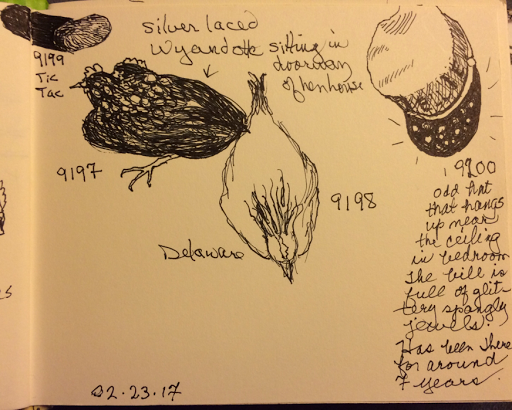 9199
Tic
Tac
silver laced
Wyandotte sitting in
doorway
of henhouse
9197
9198
Delaware
9200
odd hat
that hangs
up near
the ceiling
in bedroom
The bill is
full of glit-
tery spangly
jewels.
Has been there
for around
7 years.
02.23.17